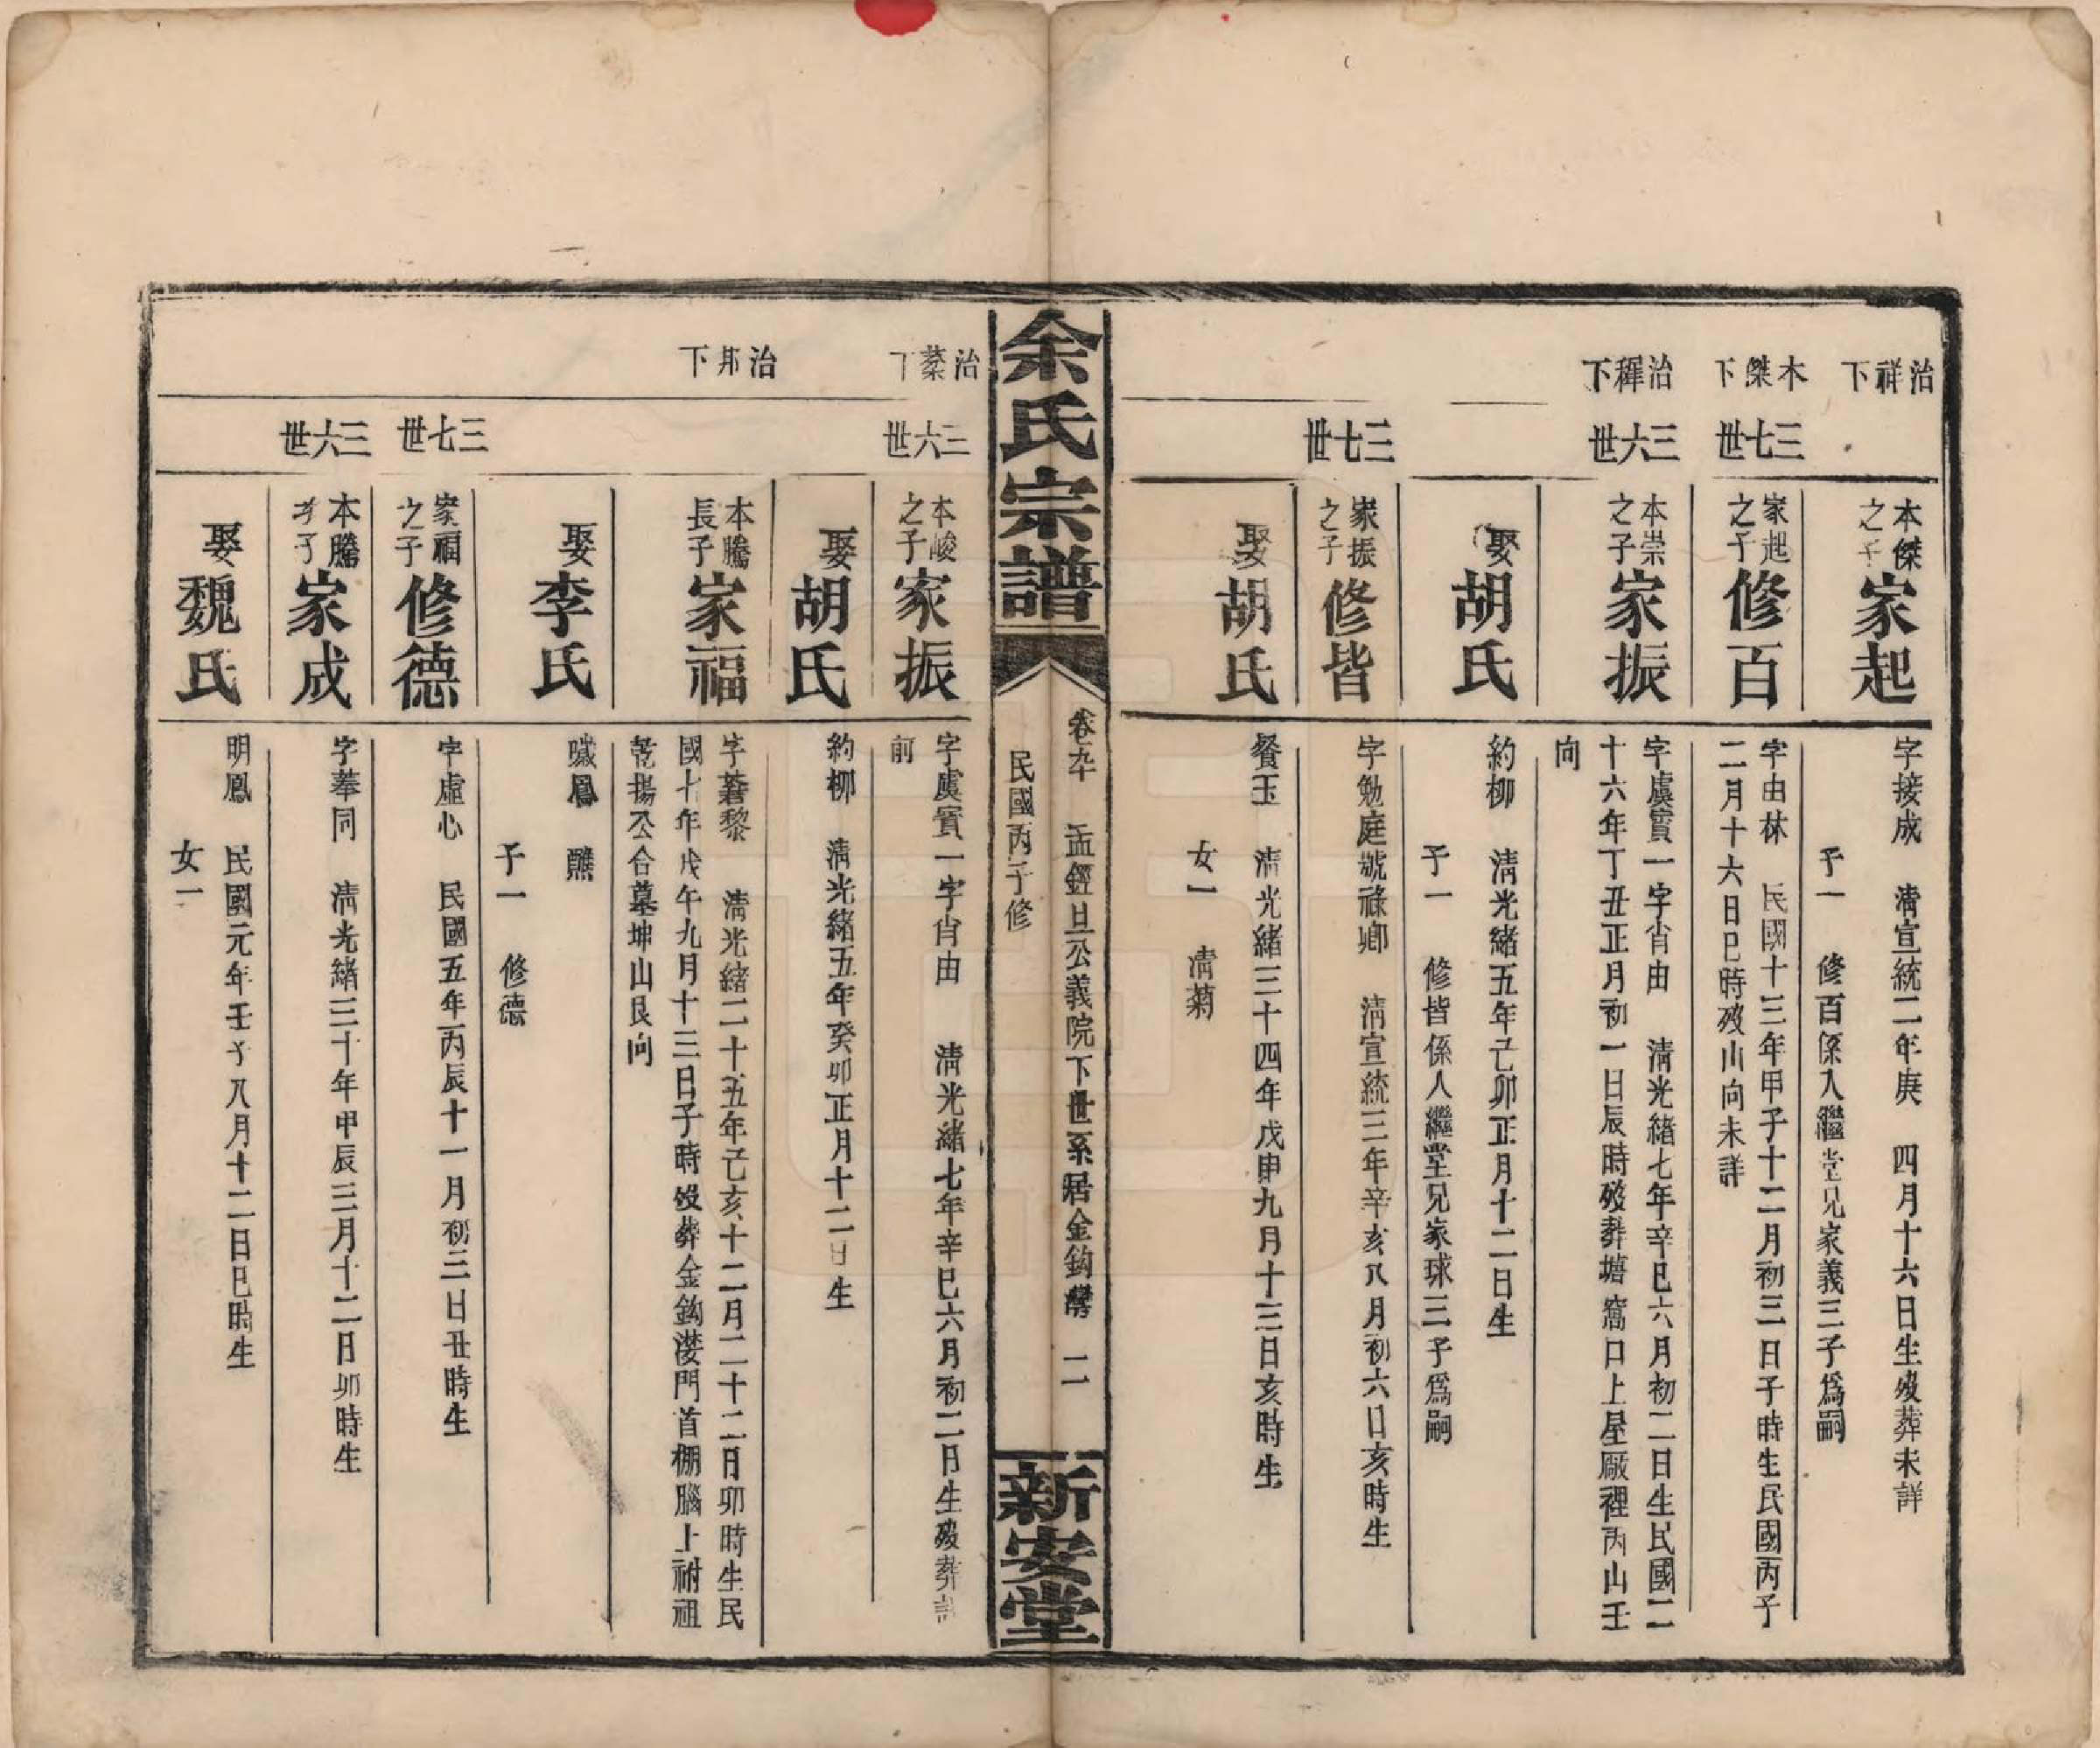 治祥下
本傑之子家起
字接成　清宣統二年庚　四月十六日生歿葬未詳
子一　修百係入繼堂兄家義三子爲嗣
木傑下
三七世
家起之子修百
字由林　民國十三年甲子十二月初三日子時生民國丙子
二月十六日巳時歿山向未詳
治稺下
三六世
本崇之子家振
字虞賓一字肖由　清光緒七年辛巳六月初二日生民國二
十六年丁丑正月初一日辰時歿葬塘窩口上屋厰裡丙山壬
向
娶胡氏
約柳　清光緒五年己卯正月十二日生
子一　修皆係人繼堂兄家球三子爲嗣
三七世
家振之子修皆
字勉庭號祿鄉　清宣統三年辛亥八月初六日亥時生
娶胡氏
餐玉　清光緒三十四年戊申九月十三日亥時生
女一　清菊
余氏宗譜
卷五十　孟經旦公義院下世系居金鈎灣　二
民國丙子修
新安堂
治棻下
三六世
本峻之子家振
字虞賓一字肖由　清光緒七年辛巳六月初二日生歿葬
前
娶胡氏
約柳　清光緒五年癸卯正月十二日生
治邦下
本騰長子家福
字蒼黎　清光緒二十五年己亥十二月二十二日卯時生民
國七年戊午九月十三日子時歿葬金鈎漤門首棚腦上祔祖
乾揚公合墓坤山艮向
娶李氏
鳳　醮
子一　修德
三七世
家福之子修德
字虛心　民國五年丙辰十一月初三日丑時生
三六世
本騰子家成
字奉同　清光緒三十年甲辰三月十二日卯時生
娶魏氏
明鳳　民國元年壬子八月十二日巳時生
女一